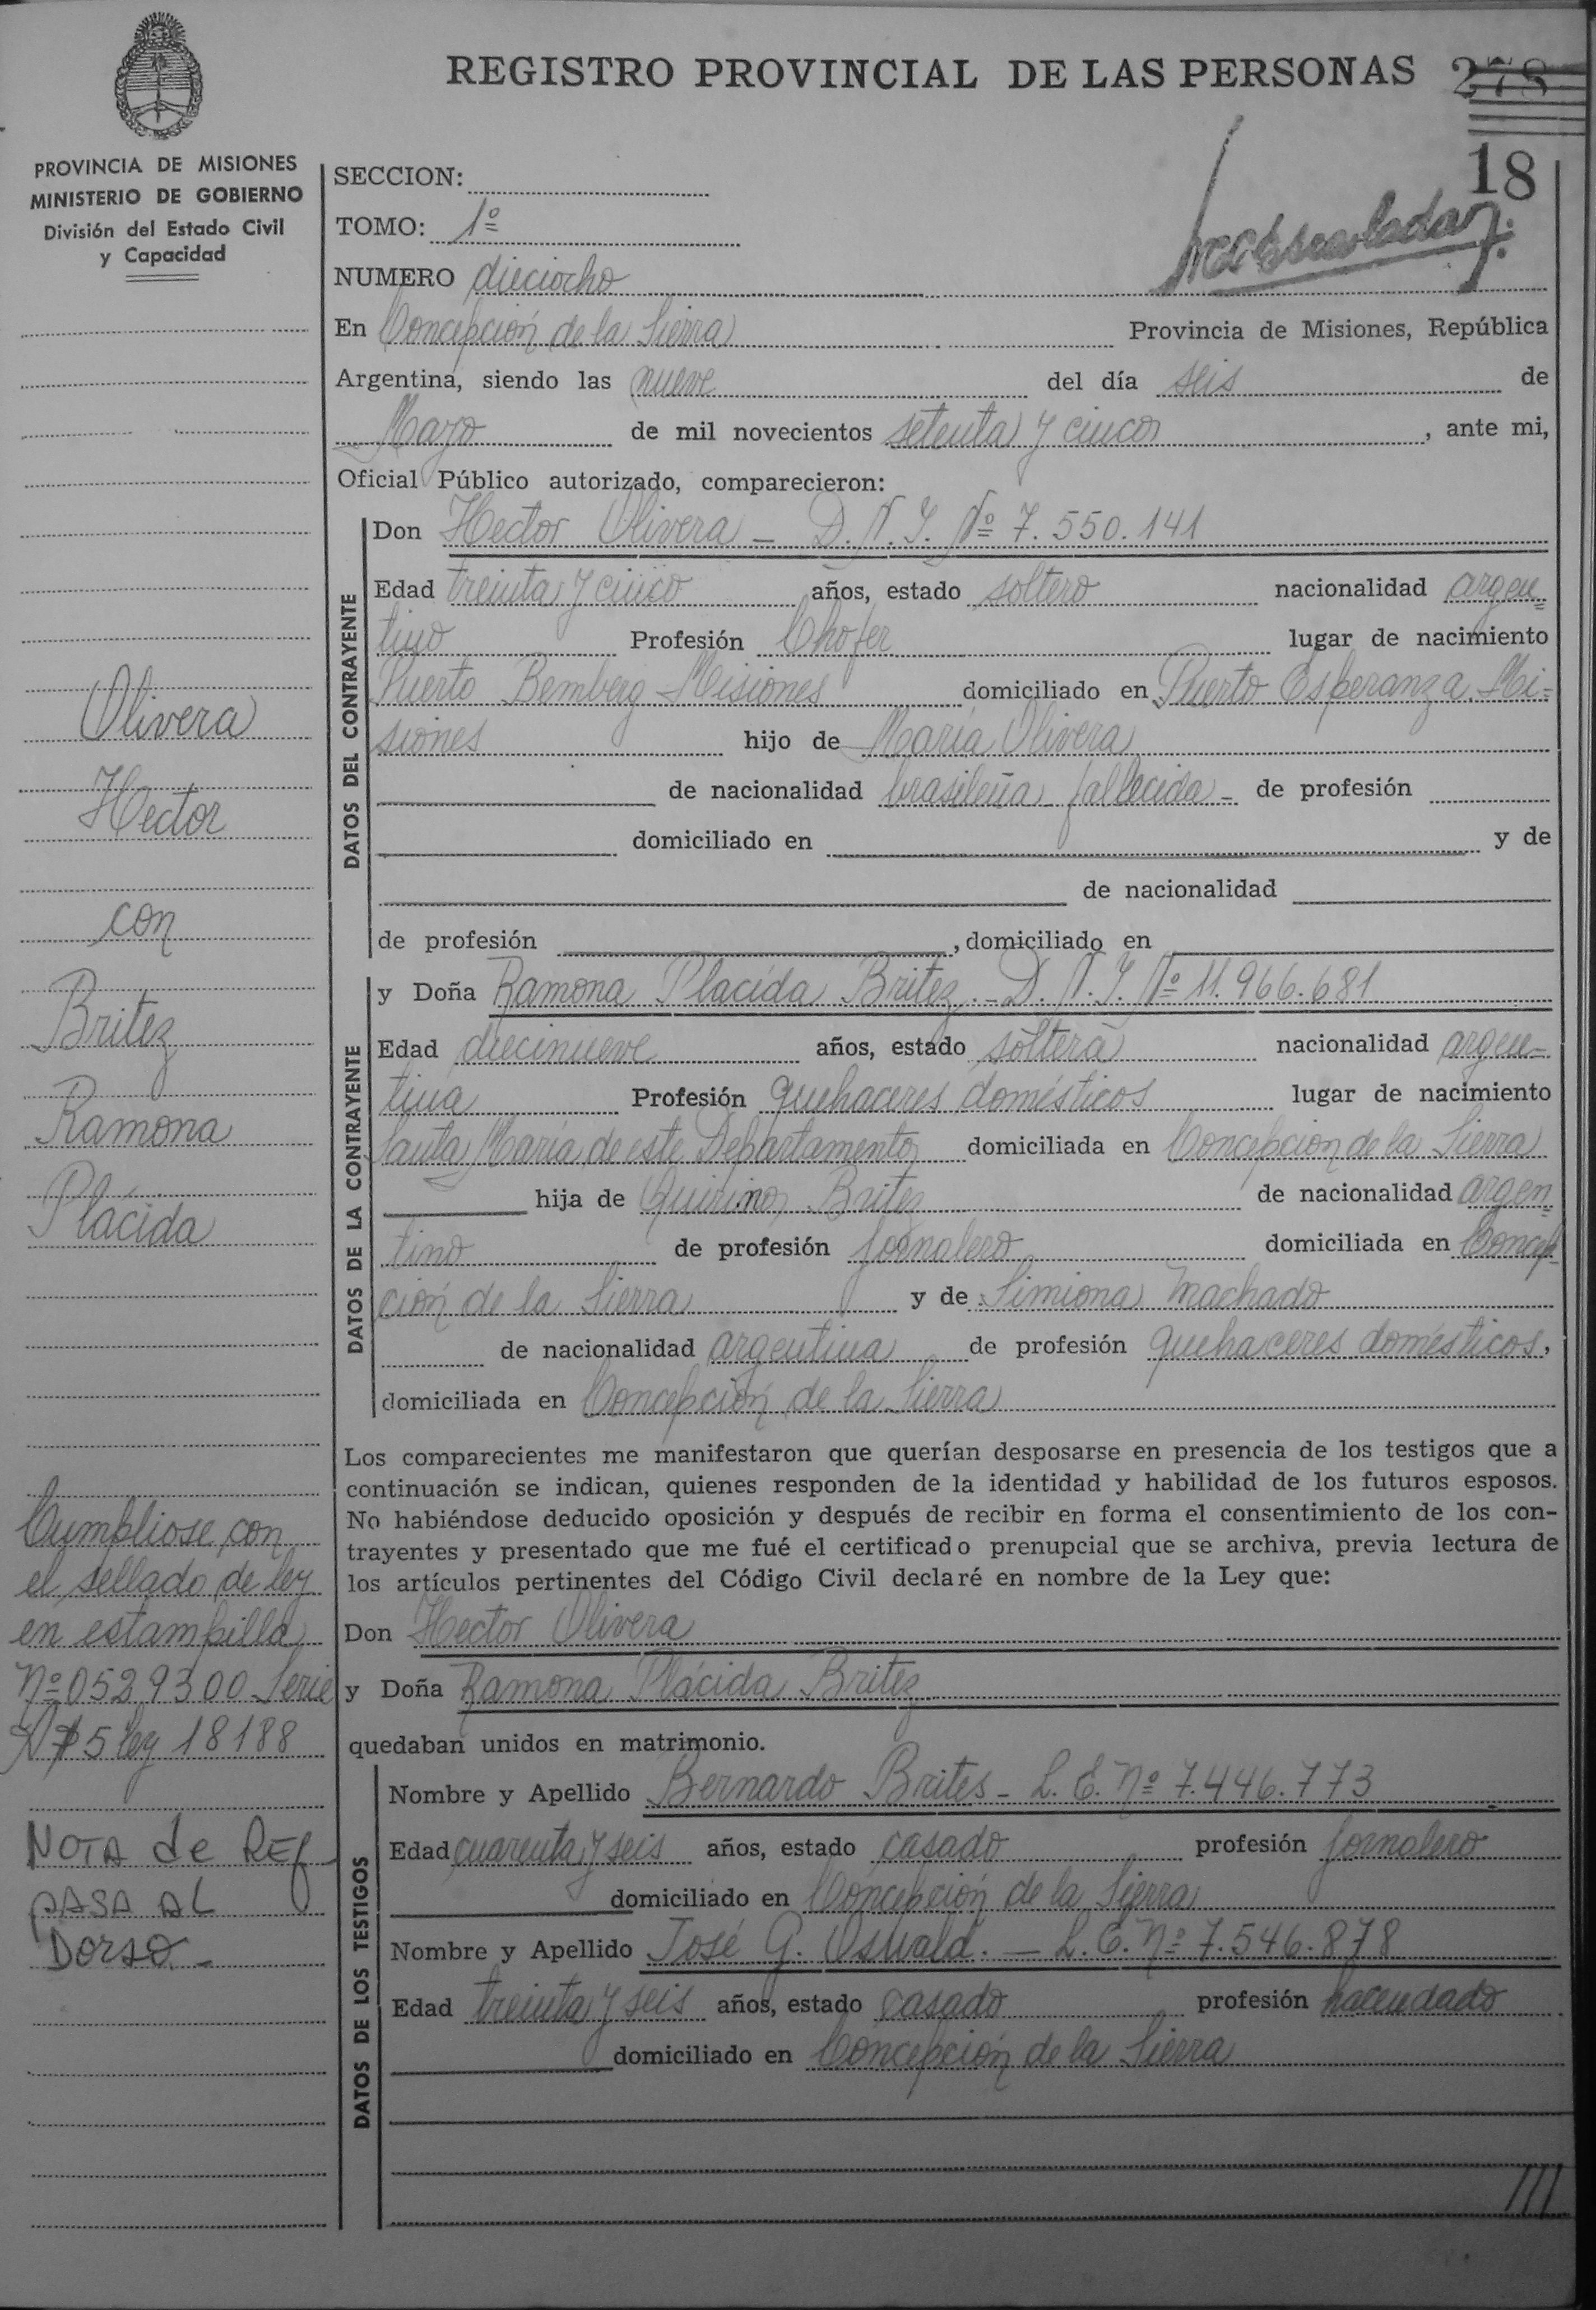 REGISTRO PROVINCIAL DE LAS PERSONAS 278
18
PROVINCIA DE MISIONES
MINISTERIO DE GOBIERNO
División del Estado Civil
y Capacidad
SECCION:
TOMO: 1º
NUMERO dieciocho
En Concepción de la Sierra Provincia de Misiones, República
Argentina, siendo las nueve del día seis de
Mayo de mil novecientos setenta y cinco, ante mi,
Oficial Público autorizado, comparecieron:
DATOS DEL CONTRAYENTE
Don Hector Olivera - D. N. I. Nº 7.550.141
Edad treinta y cinco años, estado soltero nacionalidad argen=
tino Profesión Chofer lugar de nacimiento
Puerto Bemberg Misiones domiciliado en Puerto Esperanza Mi=
siones hijo de María Olivera
de nacionalidad brasileña fallecida - de profesión
domiciliado en y de
de nacionalidad
de profesión , domiciliado en
DATOS DE LA CONTRAYENTE
y Doña Ramona Placida Britez - D. N. I. Nº 11.966.681
Edad diecinueve años, estado soltera nacionalidad argen=
tina Profesión quehaceres domésticos lugar de nacimiento
Santa María de este Departamento domiciliada en Concepcion de la Sierra
hija de Quirino Britez de nacionalidad argen=
tino de profesión jornalero domiciliada en Concep=
ción de la Sierra y de Simiona Machado
de nacionalidad argentina de profesión quehaceres domésticos,
domiciliada en Concepción de la Sierra
Los comparecientes me manifestaron que querían desposarse en presencia de los testigos que a
continuación se indican, quienes responden de la identidad y habilidad de los futuros esposos.
No habiéndose deducido oposición y después de recibir en forma el consentimiento de los con-
trayentes y presentado que me fué el certificado prenupcial que se archiva, previa lectura de
los artículos pertinentes del Código Civil declaré en nombre de la Ley que:
Don Hector Olivera
y Doña Ramona Plácida Britez
quedaban unidos en matrimonio.
DATOS DE LOS TESTIGOS
Nombre y Apellido Bernardo Brites - L. E. Nº 7.446.773
Edad cuarenta y seis años, estado casado profesión jornalero
domiciliado en Concepción de la Sierra
Nombre y Apellido José G. Oswald. - L. E. Nº 7.546.878
Edad treinta y seis años, estado casado profesión hacendado
domiciliado en Concepción de la Sierra
Olivera
Hector
con
Britez
Ramona
Plácida
Cumpliose con
el sellado de ley
en estampilla
Nº 0529300 Serie
A $ 5 ley 18188
NOTA de REf
PASA AL
Dorso -